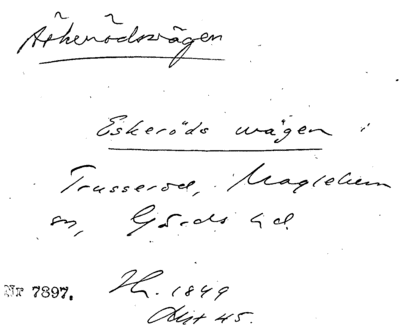 Äskerödsvägen
Eskeröds wägen i
Trusseröd, Maglehem
sn, Gärds hd.
Nr 7897. Zh. 1849
Akt 45.